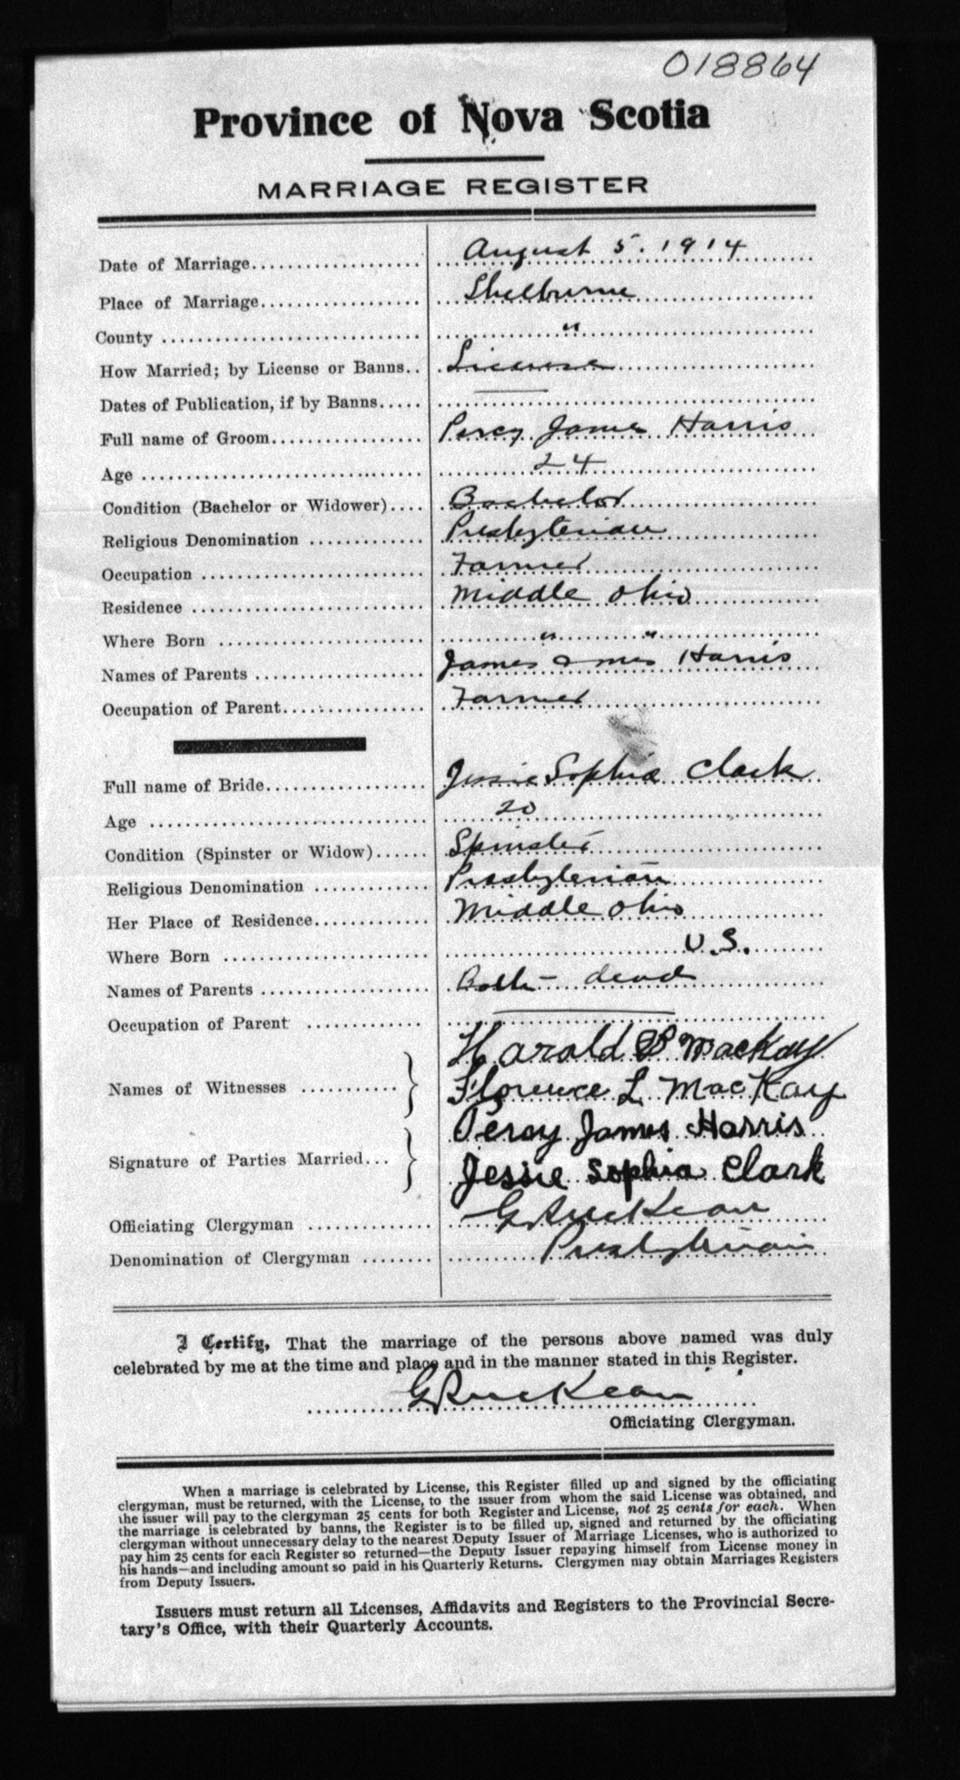 018864
Province of Nova Scotia
MARRIAGE REGISTER
Date of Marriage.................... August 5. 1914
Place of Marriage................... Shelburne
County ............................. "
How Married; by License or Banns.. License
Dates of Publication, if by Banns..... ———
Full name of Groom................. Percy James Harris
Age ............................... 24
Condition (Bachelor or Widower).... Bachelor
Religious Denomination ............ Presbyterian
Occupation ........................ Farmer
Residence ......................... Middle Ohio
Where Born ........................ " "
Names of Parents .................. James & Mrs Harris
Occupation of Parent............... Farmer
Full name of Bride................. Jessie Sophia Clark
Age ............................... 20
Condition (Spinster or Widow)...... Spinster
Religious Denomination ............ Presbyterian
Her Place of Residence............. Middle Ohio
Where Born ........................ U.S.
Names of Parents .................. Both - dead
Occupation of Parent ............. ———
Harold MacKay
Names of Witnesses ........... } Florence L MacKay
Percy James Harris
Signature of Parties Married... } Jessie Sophia Clark
Officiating Clergyman .............
Denomination of Clergyman ........ Presbyterian
I Certify, That the marriage of the persons above named was duly
celebrated by me at the time and place and in the manner stated in this Register.
Officiating Clergyman.
When a marriage is celebrated by License, this Register filled up and signed by the officiating
clergyman, must be returned, with the License, to the issuer from whom the said License was obtained, and
the issuer will pay to the clergyman 25 cents for both Register and License, not 25 cents for each. When
the marriage is celebrated by banns, the Register is to be filled up, signed and returned by the officiating
clergyman without unnecessary delay to the nearest Deputy Issuer of Marriage Licenses, who is authorized to
pay him 25 cents for each Register so returned—the Deputy Issuer repaying himself from License money in
his hands—and including amount so paid in his Quarterly Returns. Clergymen may obtain Marriages Registers
from Deputy Issuers.
Issuers must return all Licenses, Affidavits and Registers to the Provincial Secre-
tary's Office, with their Quarterly Accounts.